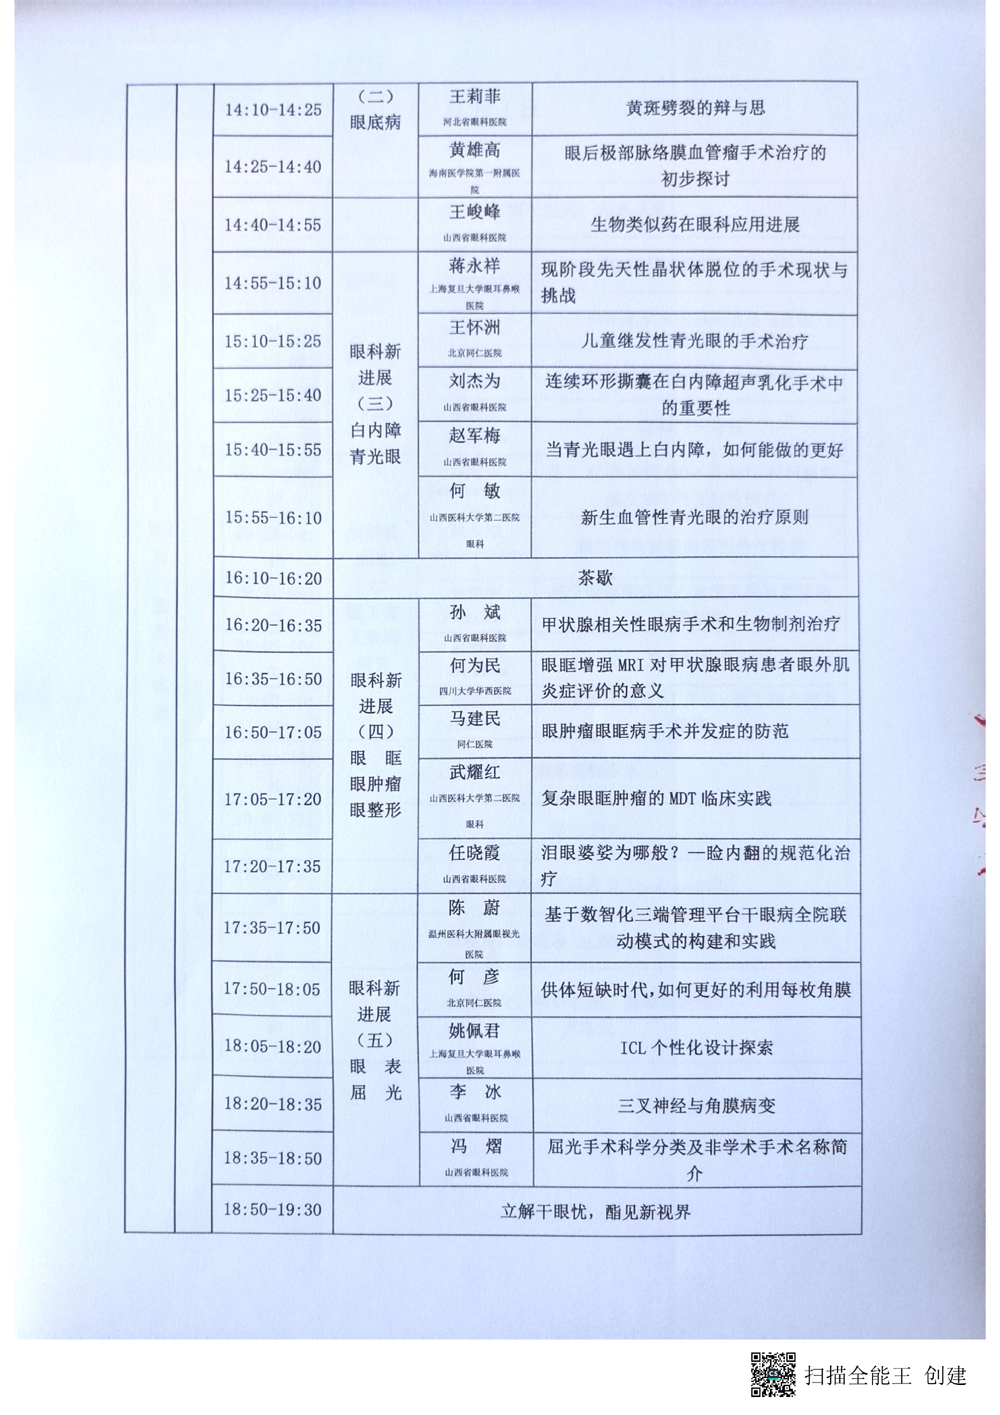 14:10-14:25
（二）
眼底病
王莉菲
河北省眼科医院
黄斑劈裂的辩与思
14:25-14:40
黄雄高
海南医学院第一附属医
院
眼后极部脉络膜血管瘤手术治疗的
初步探讨
14:40-14:55
王峻峰
山西省眼科医院
生物类似药在眼科应用进展
14:55-15:10
眼科新
进展
（三）
白内障
青光眼
蒋永祥
上海复旦大学眼耳鼻喉
医院
现阶段先天性晶状体脱位的手术现状与
挑战
15:10-15:25
王怀洲
北京同仁医院
儿童继发性青光眼的手术治疗
15:25-15:40
刘杰为
山西省眼科医院
连续环形撕囊在白内障超声乳化手术中
的重要性
15:40-15:55
赵军梅
山西省眼科医院
当青光眼遇上白内障，如何能做的更好
15:55-16:10
何 敏
山西医科大学第二医院
眼科
新生血管性青光眼的治疗原则
16:10-16:20
茶歇
16:20-16:35
眼科新
进展
（四）
眼 眶
眼肿瘤
眼整形
孙 斌
山西省眼科医院
甲状腺相关性眼病手术和生物制剂治疗
16:35-16:50
何为民
四川大学华西医院
眼眶增强 MRI 对甲状腺眼病患者眼外肌
炎症评价的意义
16:50-17:05
马建民
同仁医院
眼肿瘤眼眶病手术并发症的防范
17:05-17:20
武耀红
山西医科大学第二医院
眼科
复杂眼眶肿瘤的 MDT 临床实践
17:20-17:35
任晓霞
山西省眼科医院
泪眼婆娑为哪般？—睑内翻的规范化治
疗
17:35-17:50
眼科新
进展
（五）
眼 表
屈 光
陈 蔚
温州医科大附属眼视光
医院
基于数智化三端管理平台干眼病全院联
动模式的构建和实践
17:50-18:05
何 彦
北京同仁医院
供体短缺时代，如何更好的利用每枚角膜
18:05-18:20
姚佩君
上海复旦大学眼耳鼻喉
医院
ICL 个性化设计探索
18:20-18:35
李 冰
山西省眼科医院
三叉神经与角膜病变
18:35-18:50
冯 熠
山西省眼科医院
屈光手术科学分类及非学术手术名称简
介
18:50-19:30
立解干眼忧，酯见新视界
扫描全能王 创建